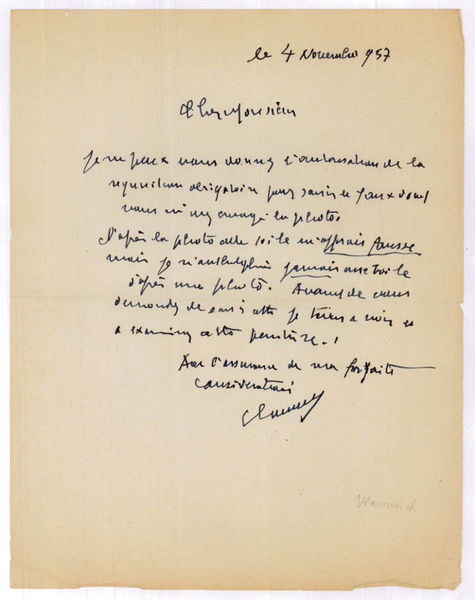 le 4 Novembre 957
Cher Monsieur
Je ne peux vous donner l'autorisation de la
réquisition obligatoire pour saisir ce faux dont
vous m'avez envoyé la photo.
D'après la photo cette toile m'apparait fausse
mais je n'authentifie jamais une toile
d'après une photo. Avant de vous
de je tiens à voir et
a examiner cette peinture.
Avec l'assurance de ma parfaite
considération
Vlaminck
Vlaminck